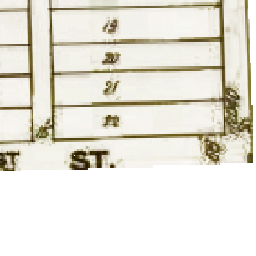 19
20
21
22
ST ST.